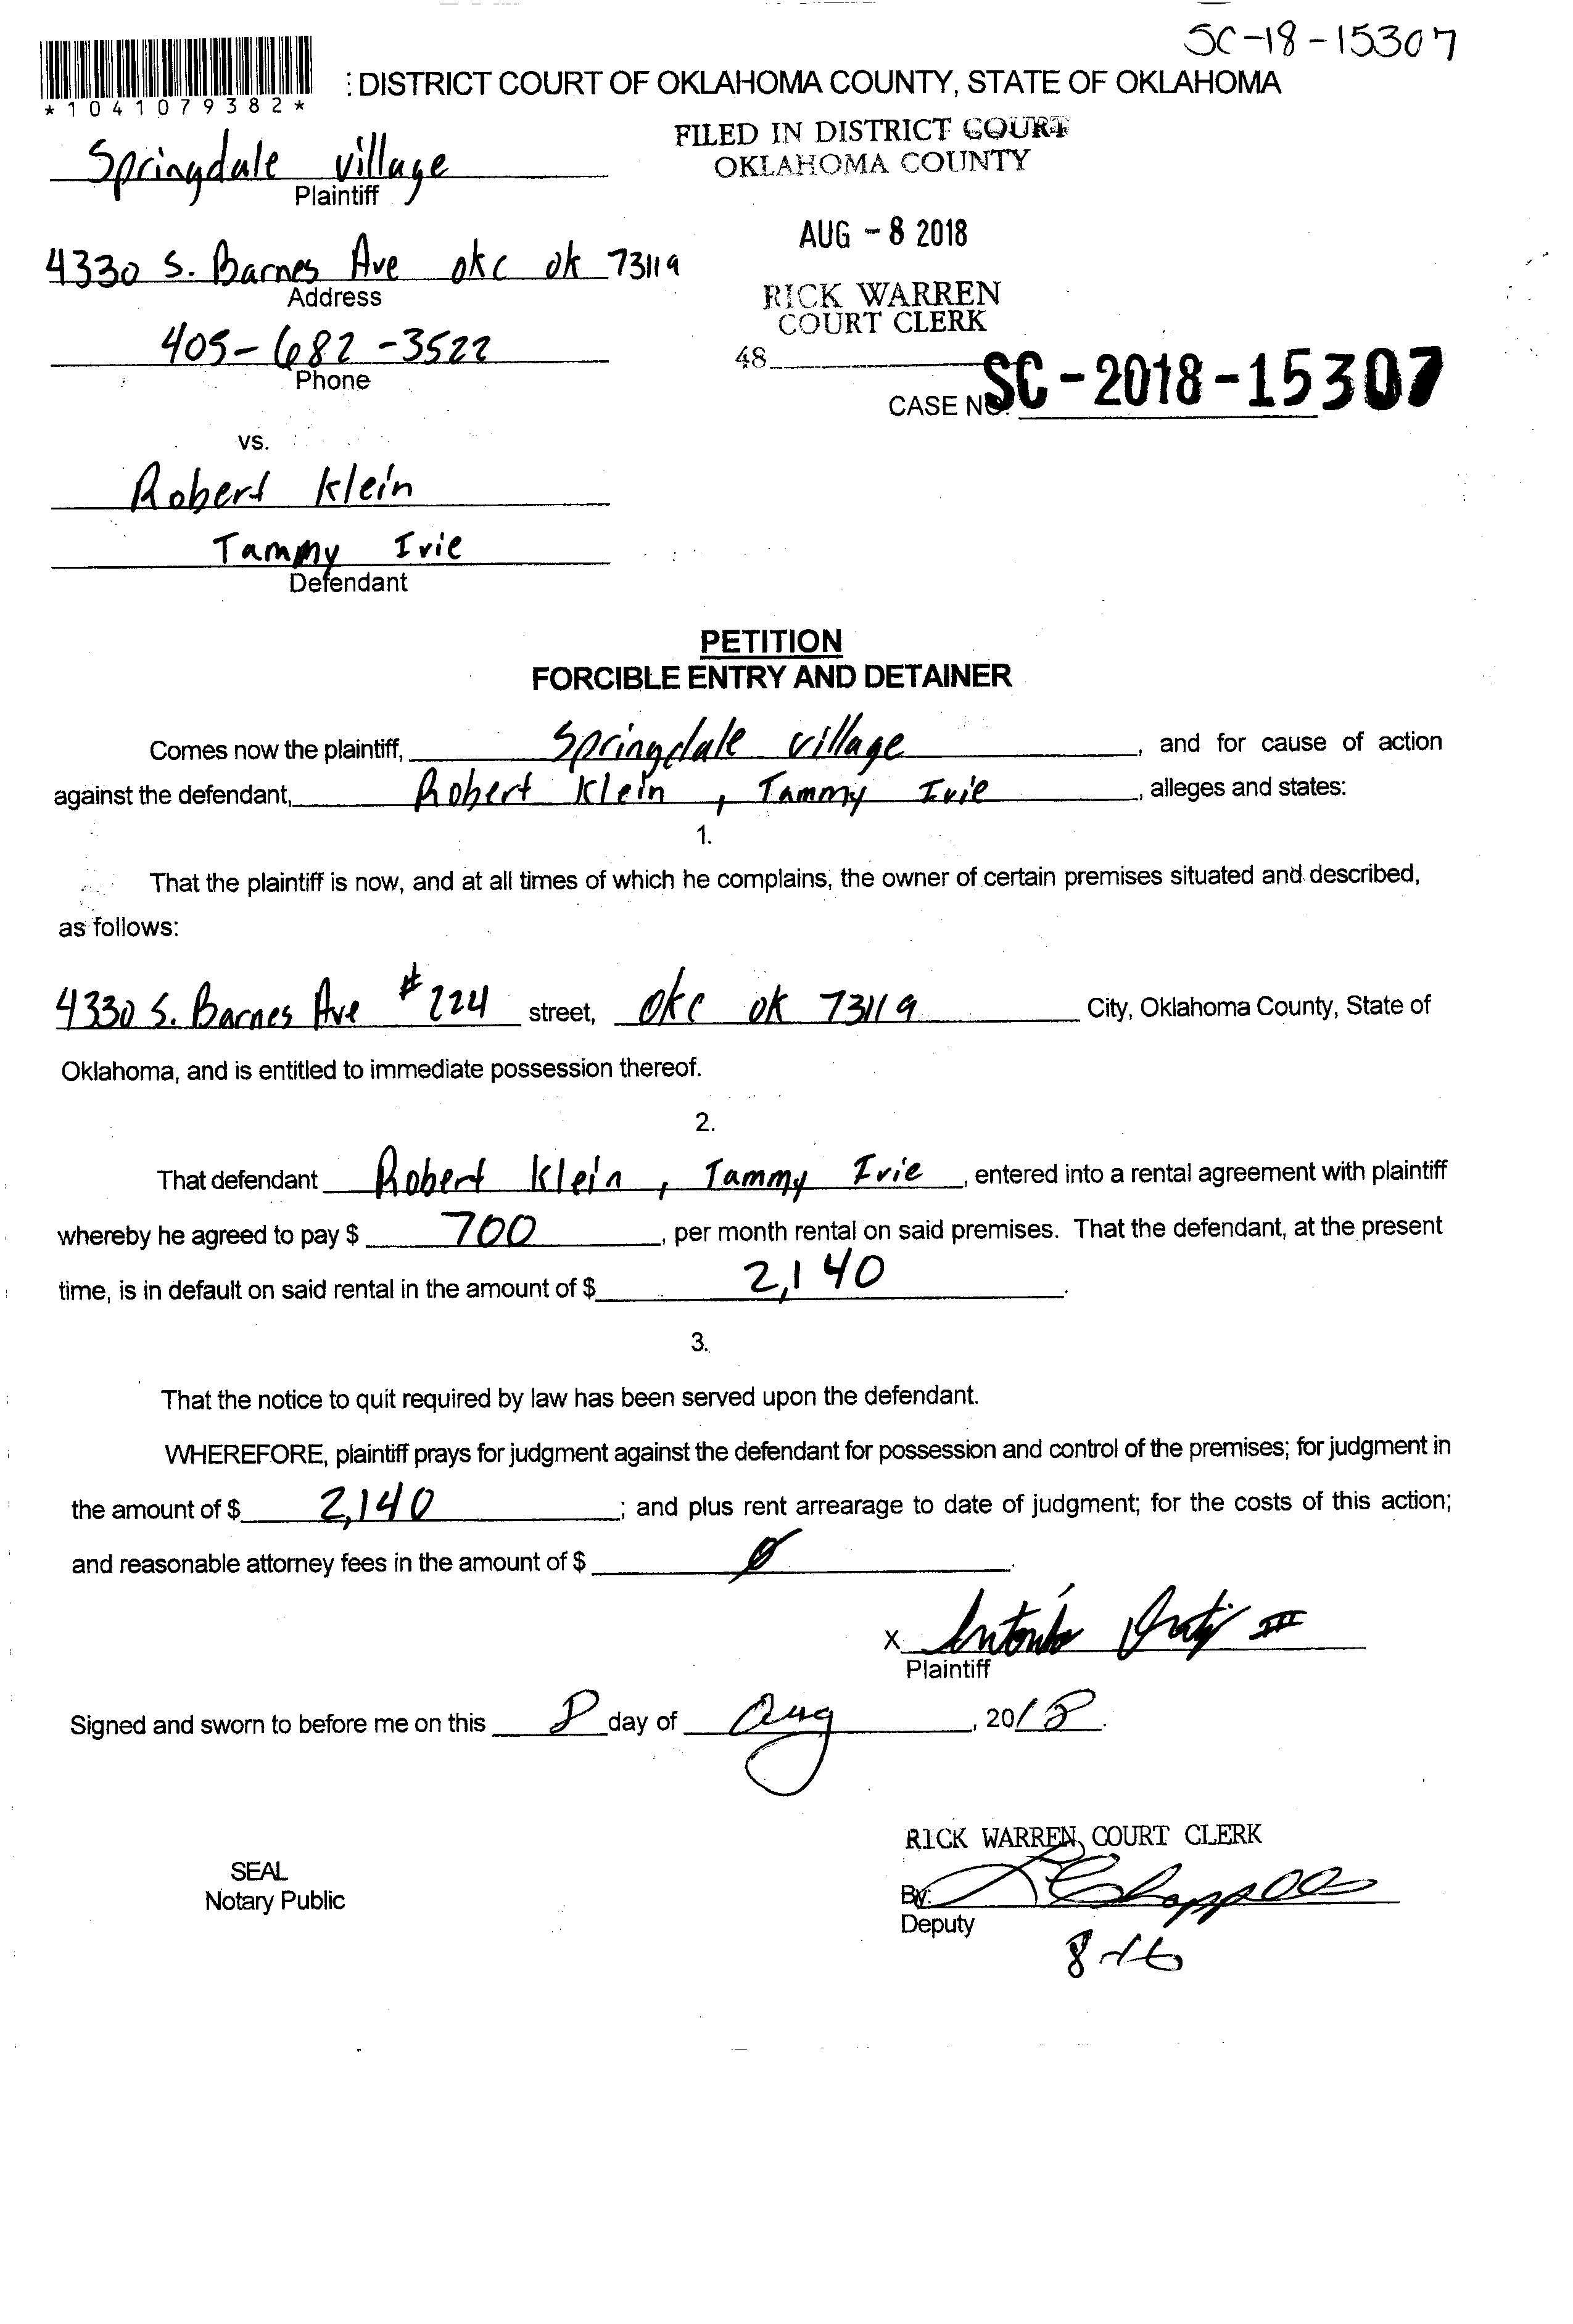 SC-18-15307
*1041079382*
: DISTRICT COURT OF OKLAHOMA COUNTY, STATE OF OKLAHOMA
FILED IN DISTRICT COURT
OKLAHOMA COUNTY
Springdale village
Plaintiff
AUG - 8 2018
4330 S. Barnes Ave okc ok 73119
Address
RICK WARREN
COURT CLERK
405-682-3522
Phone
48
CASE NO. SC-2018-15307
vs.
Robert Klein
Tammy Ivie
Defendant
PETITION
FORCIBLE ENTRY AND DETAINER
Comes now the plaintiff, Springdale village, and for cause of action
against the defendant, Robert Klein, Tammy Ivie, alleges and states:
1.
That the plaintiff is now, and at all times of which he complains, the owner of certain premises situated and described,
as follows:
4330 S. Barnes Ave #224 street, okc ok 73119 City, Oklahoma County, State of
Oklahoma, and is entitled to immediate possession thereof.
2.
That defendant Robert Klein, Tammy Ivie, entered into a rental agreement with plaintiff
whereby he agreed to pay $ 700, per month rental on said premises. That the defendant, at the present
time, is in default on said rental in the amount of $ 2,140.
3.
That the notice to quit required by law has been served upon the defendant.
WHEREFORE, plaintiff prays for judgment against the defendant for possession and control of the premises; for judgment in
the amount of $ 2,140; and plus rent arrearage to date of judgment; for the costs of this action;
and reasonable attorney fees in the amount of $ 0.
X Antonio III
Plaintiff
Signed and sworn to before me on this 8 day of Aug, 2018.
RICK WARREN, COURT CLERK
SEAL
Notary Public
By:
Deputy
8-16